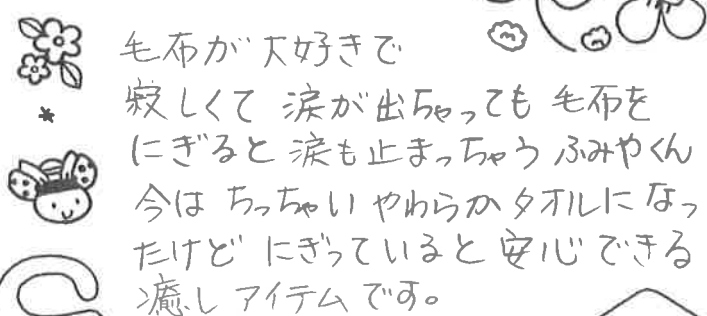 毛布が大好きで
寂しくて 涙が出ちゃっても 毛布を
にぎると 涙も止まっちゃう ふみやくん
今は ちっちゃい やわらかタオルに なっ
たけど にぎっていると 安心できる
癒し アイテムです。